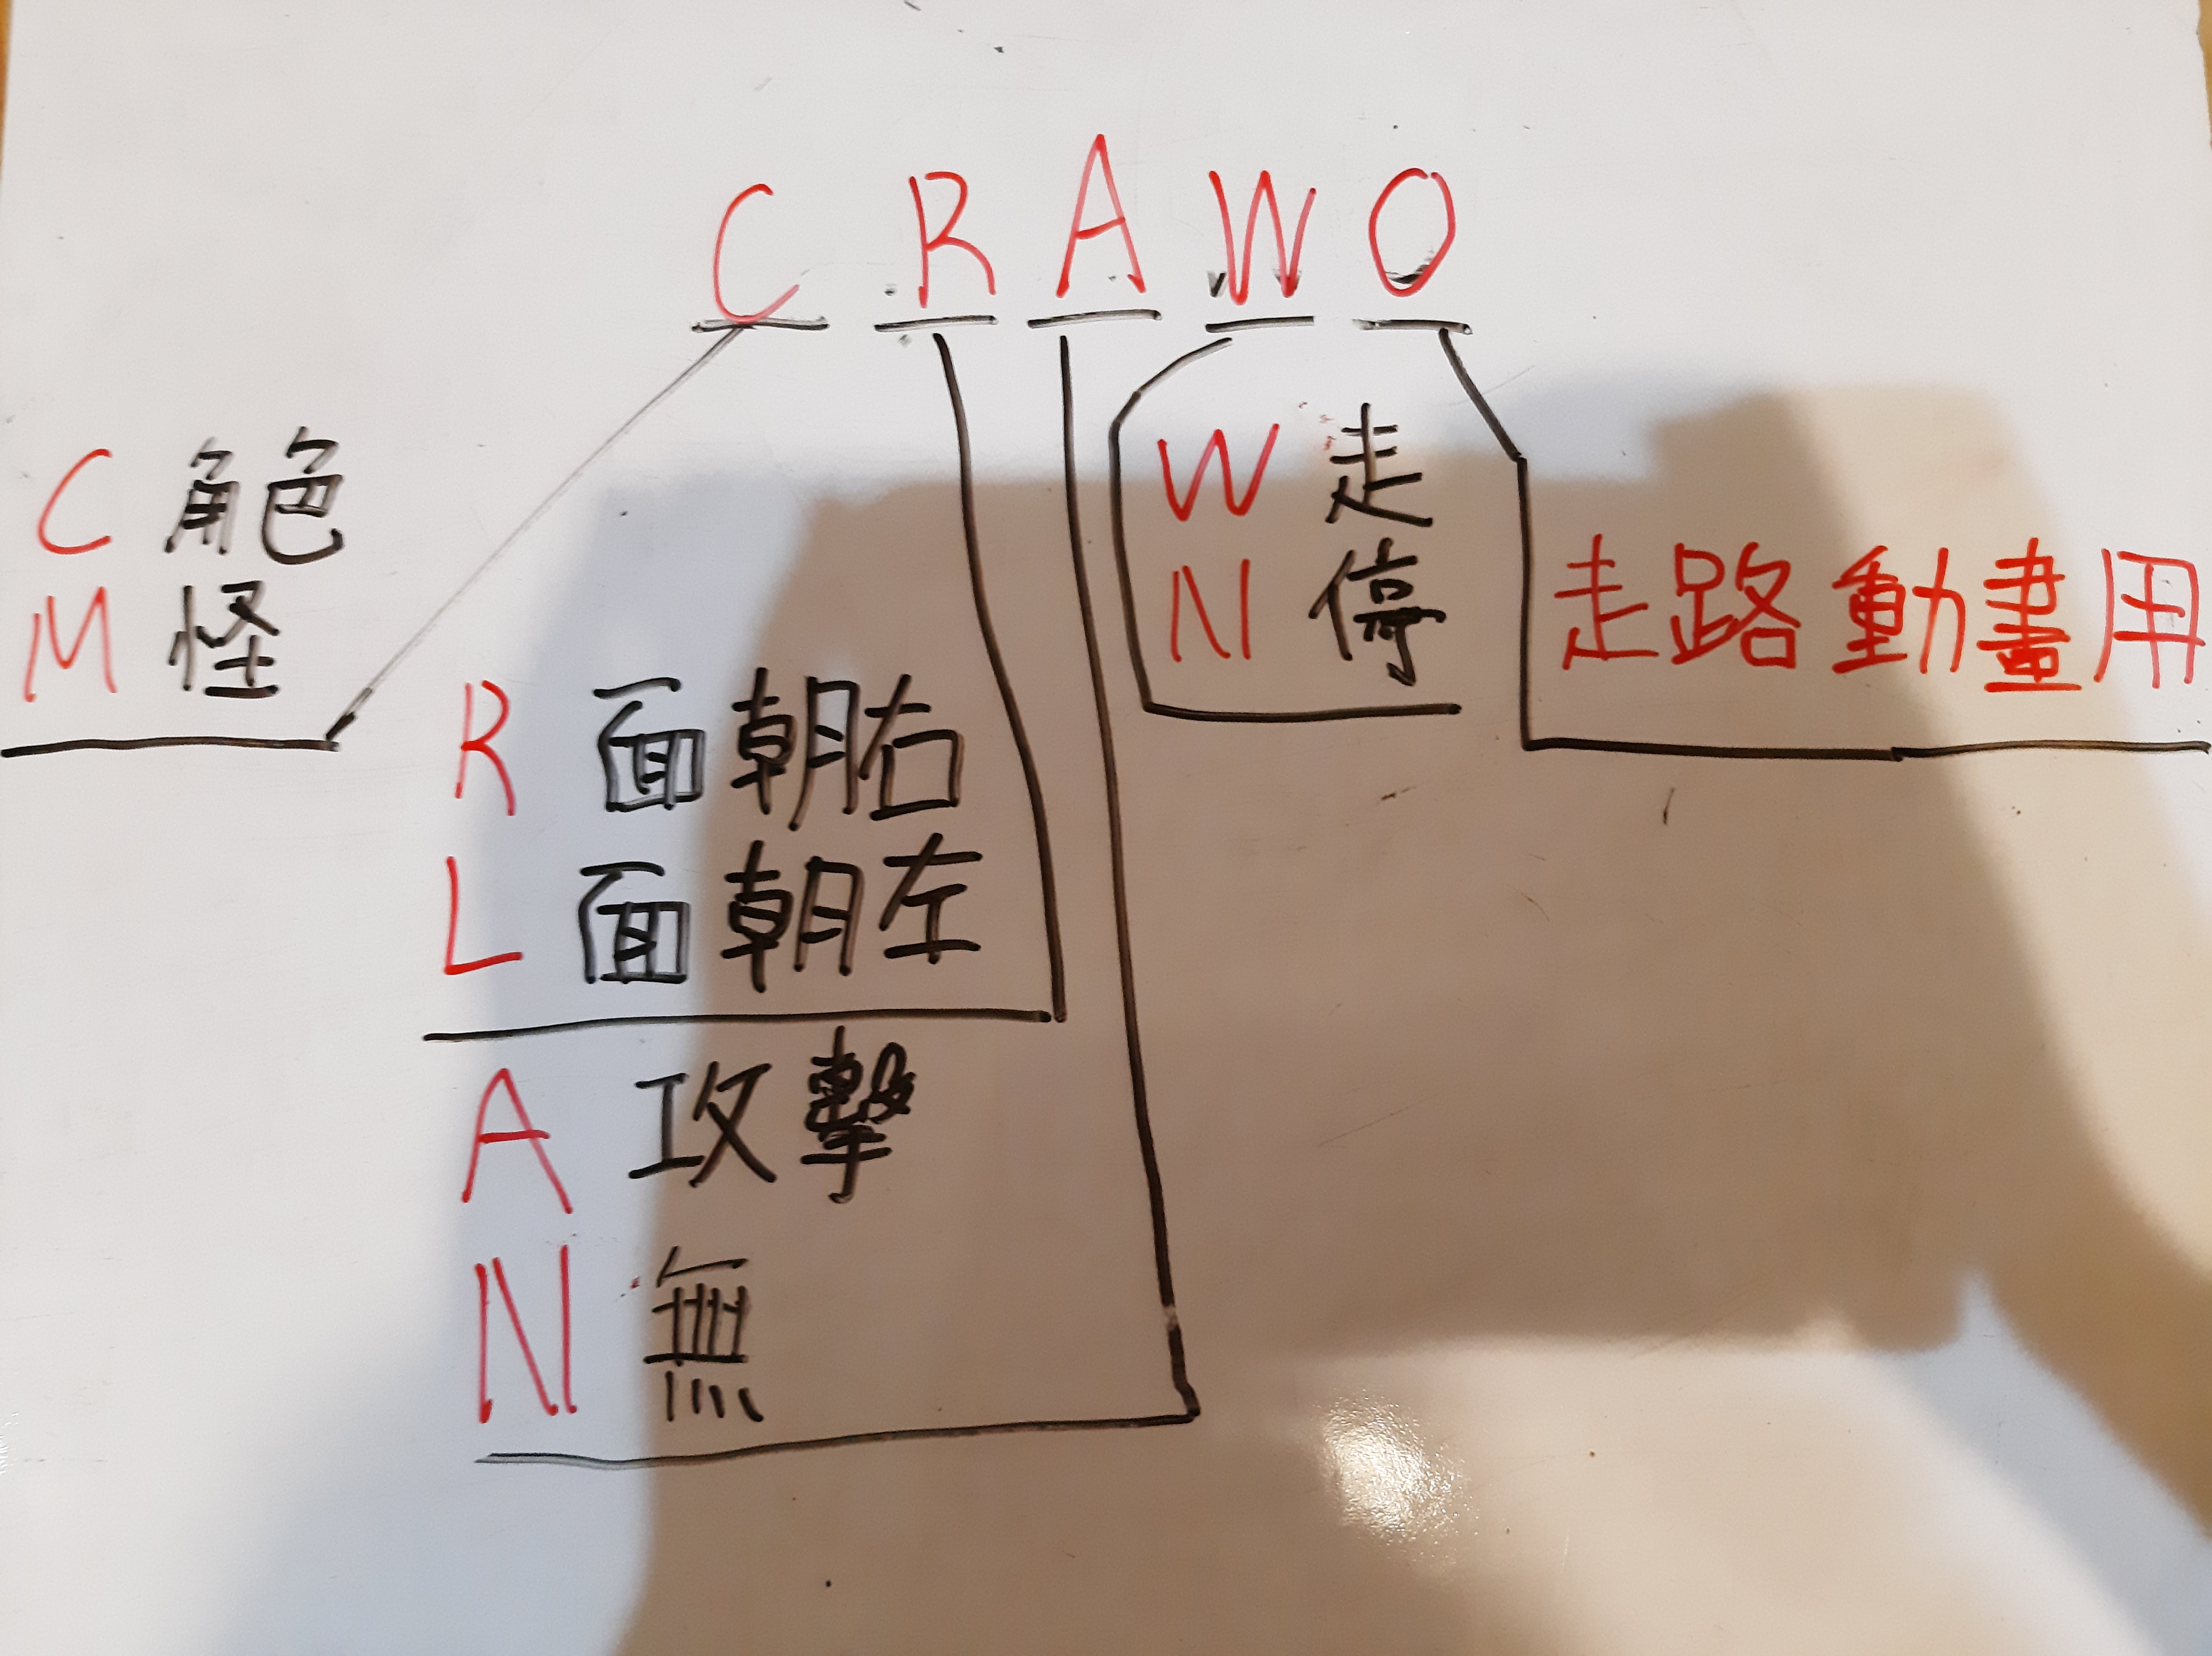 C R A W O
C 角色
M 怪
R 面朝右
L 面朝左
A 攻擊
N 無
W 走
N 停
走路動畫用